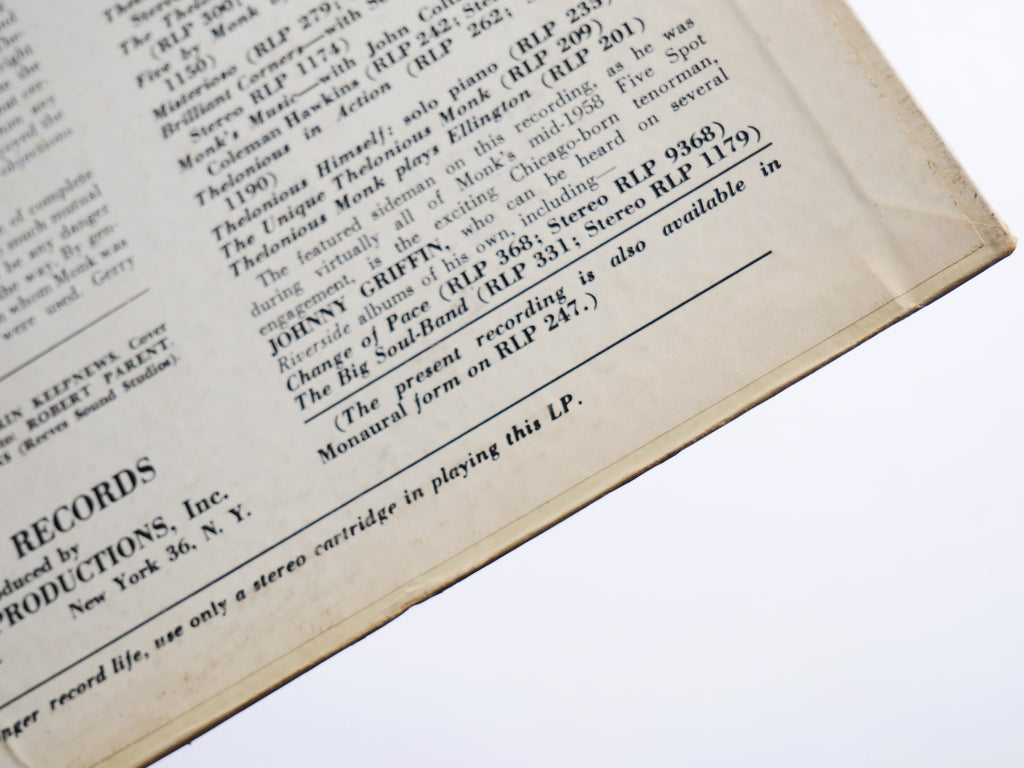 ight
the
any
ound the
objection:
of complete
much mutual
be any danger
the way. By gen-
whom Monk was
were used. Gerry
KEEPNEWS. Cover
ROBERT PARENT.
(Reeves Sound Studios).
RECORDS
oduced by
PRODUCTIONS, Inc.
New York 36, N. Y.
The
(RLP 300;
Five by Monk by
1150)
Misterioso (RLP 279;
Brilliant Corners—with
Stereo RLP 1174)
Monk's Music—with John
Coleman Hawkins (RLP 242; Ste
Thelonious in Action (RLP 262;
1190)
Thelonious Himself: solo piano (RLP 235)
The Unique Thelonious Monk (RLP 209)
Thelonious Monk plays Ellington (RLP 201)
The featured sideman on this recording, as he was
during virtually all of Monk's mid-1958 Five Spot
engagement, is the exciting Chicago-born tenorman,
JOHNNY GRIFFIN, who can be heard on several
Riverside albums of his own, including—
Change of Pace (RLP 368; Stereo RLP 9368)
The Big Soul-Band (RLP 331; Stereo RLP 1179)
(The present recording is also available in
Monaural form on RLP 247.)
nger record life, use only a stereo cartridge in playing this LP.